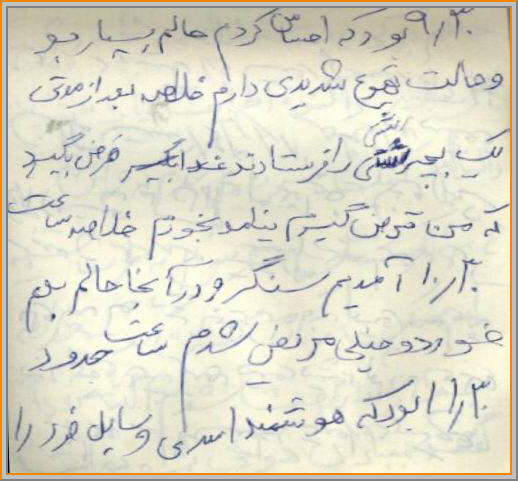 ۹/۳۰ بود که احساس کردم حالم بسیار بد
و حالت تهوع شدیدی دارم خلاصه بعد از مدتی
یک بیسیمچی را فرستادند غذا بگیر قرص بگیرد
که من قرص گیرم نیامد بخورم خلاصه ساعت
۱۰/۳۰ آمدیم سنگر و در آنجا حالم بهم
خورد و خیلی مریض شدم ساعت حدود
۱۱/۳۰ بود که هوشمند اسدی وسایل خود را